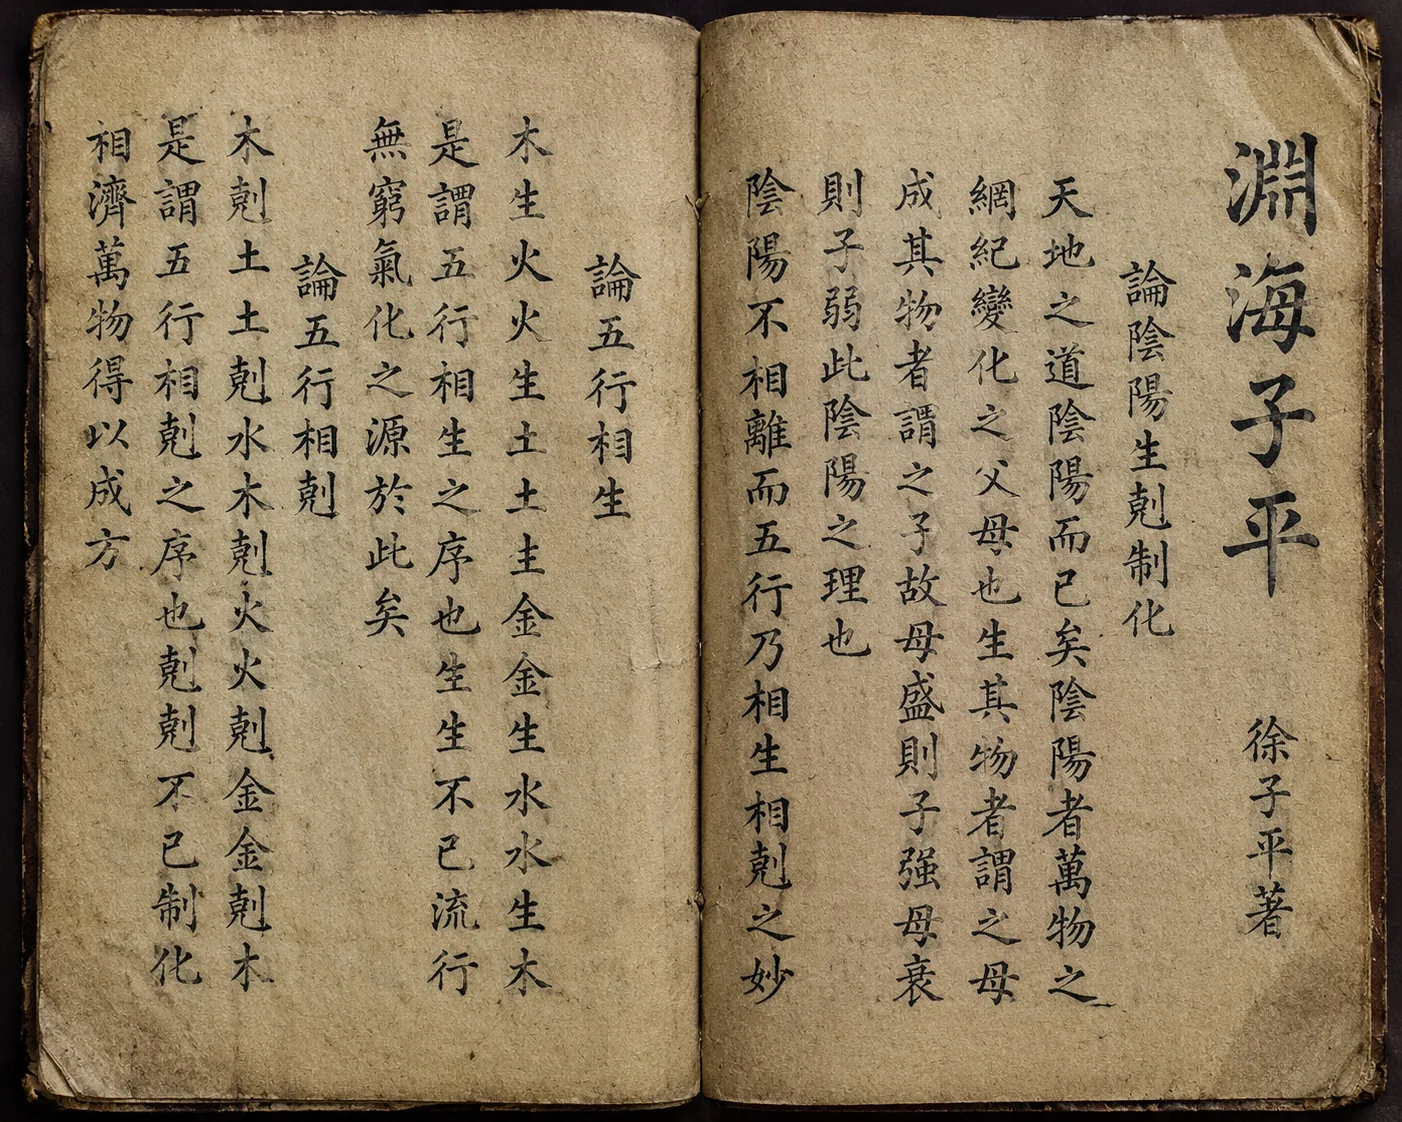 淵海子平 徐子平著
論陰陽生剋制化
天地之道陰陽而已矣陰陽者萬物之
綱紀變化之父母也生其物者謂之母
成其物者謂之子故母盛則子强母衰
則子弱此陰陽之理也
陰陽不相離而五行乃相生相剋之妙
論五行相生
木生火火生土土主金金生水水生木
是謂五行相生之序也生生不已流行
無窮氣化之源於此矣
論五行相剋
木剋土土剋水木剋火火剋金金剋木
是謂五行相剋之序也剋剋不已制化
相濟萬物得以成方